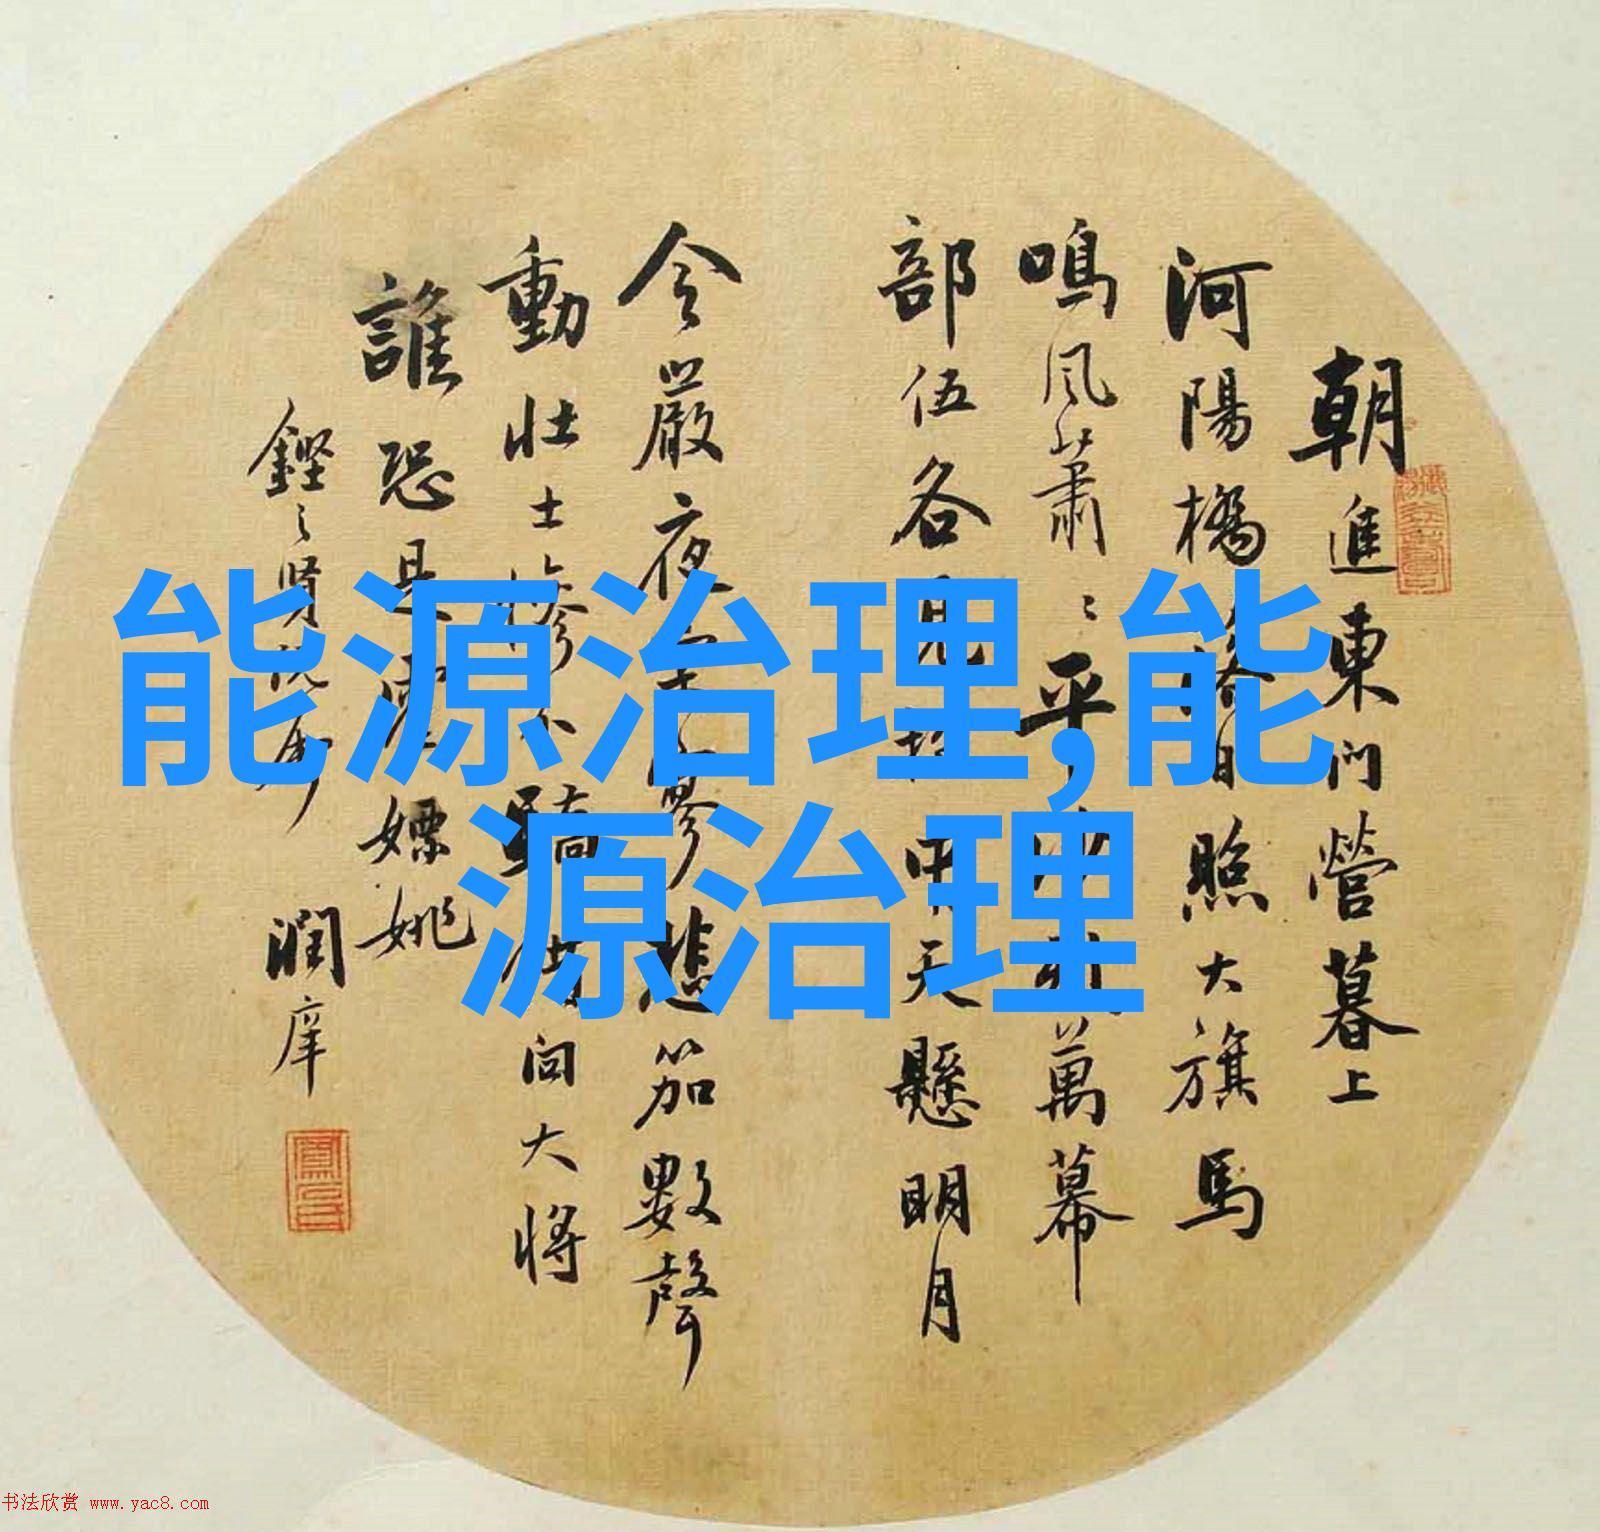 朝進東門營暮上
河陽橋落日照大旗馬
鳴風蕭〻平沙列萬幕
部伍各見招中天懸明月
令嚴夜寂寥悲笳數聲
動壮士惨不驕借问大將
誰恐是霍嫖姚
鏗之賢
潤庠
能源治理,能
源治理
书法欣赏 www.yac8.com